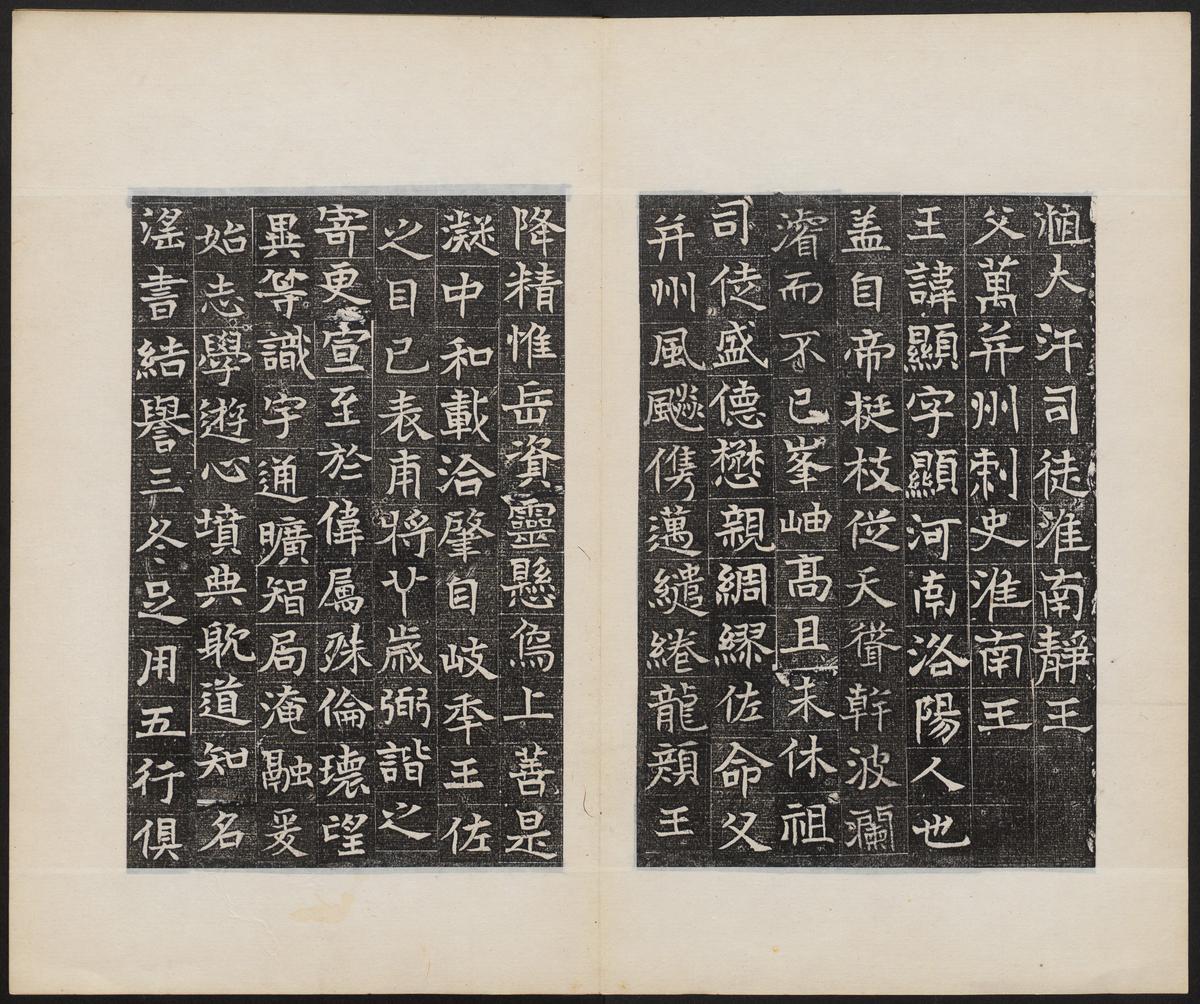 大汗司徒淮南靜王
父萬并州刺史淮南王
王諱顯字顯河南洛陽人也
盖自帝挺枝從天聳幹波瀾
濬而不已峯岫髙且未休祖
司徒盛德懋親綢繆佐命父
并州風飈儁邁繾綣龍顏王
降精惟岳資靈懸烏上善是
凝中和載洽肇自岐秊王佐
之目已表甫將丱歲弼諧之
寄更宣至於偉屬殊倫瓌望
異等識宇通曠智局淹融爰
始志學遊心墳典躭道知名
滛書結譽三冬足用五行俱